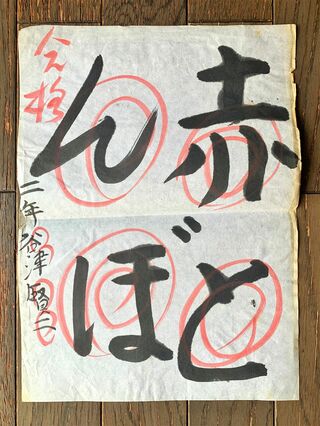 赤と
んぼ
合格
二年 谷津賢二